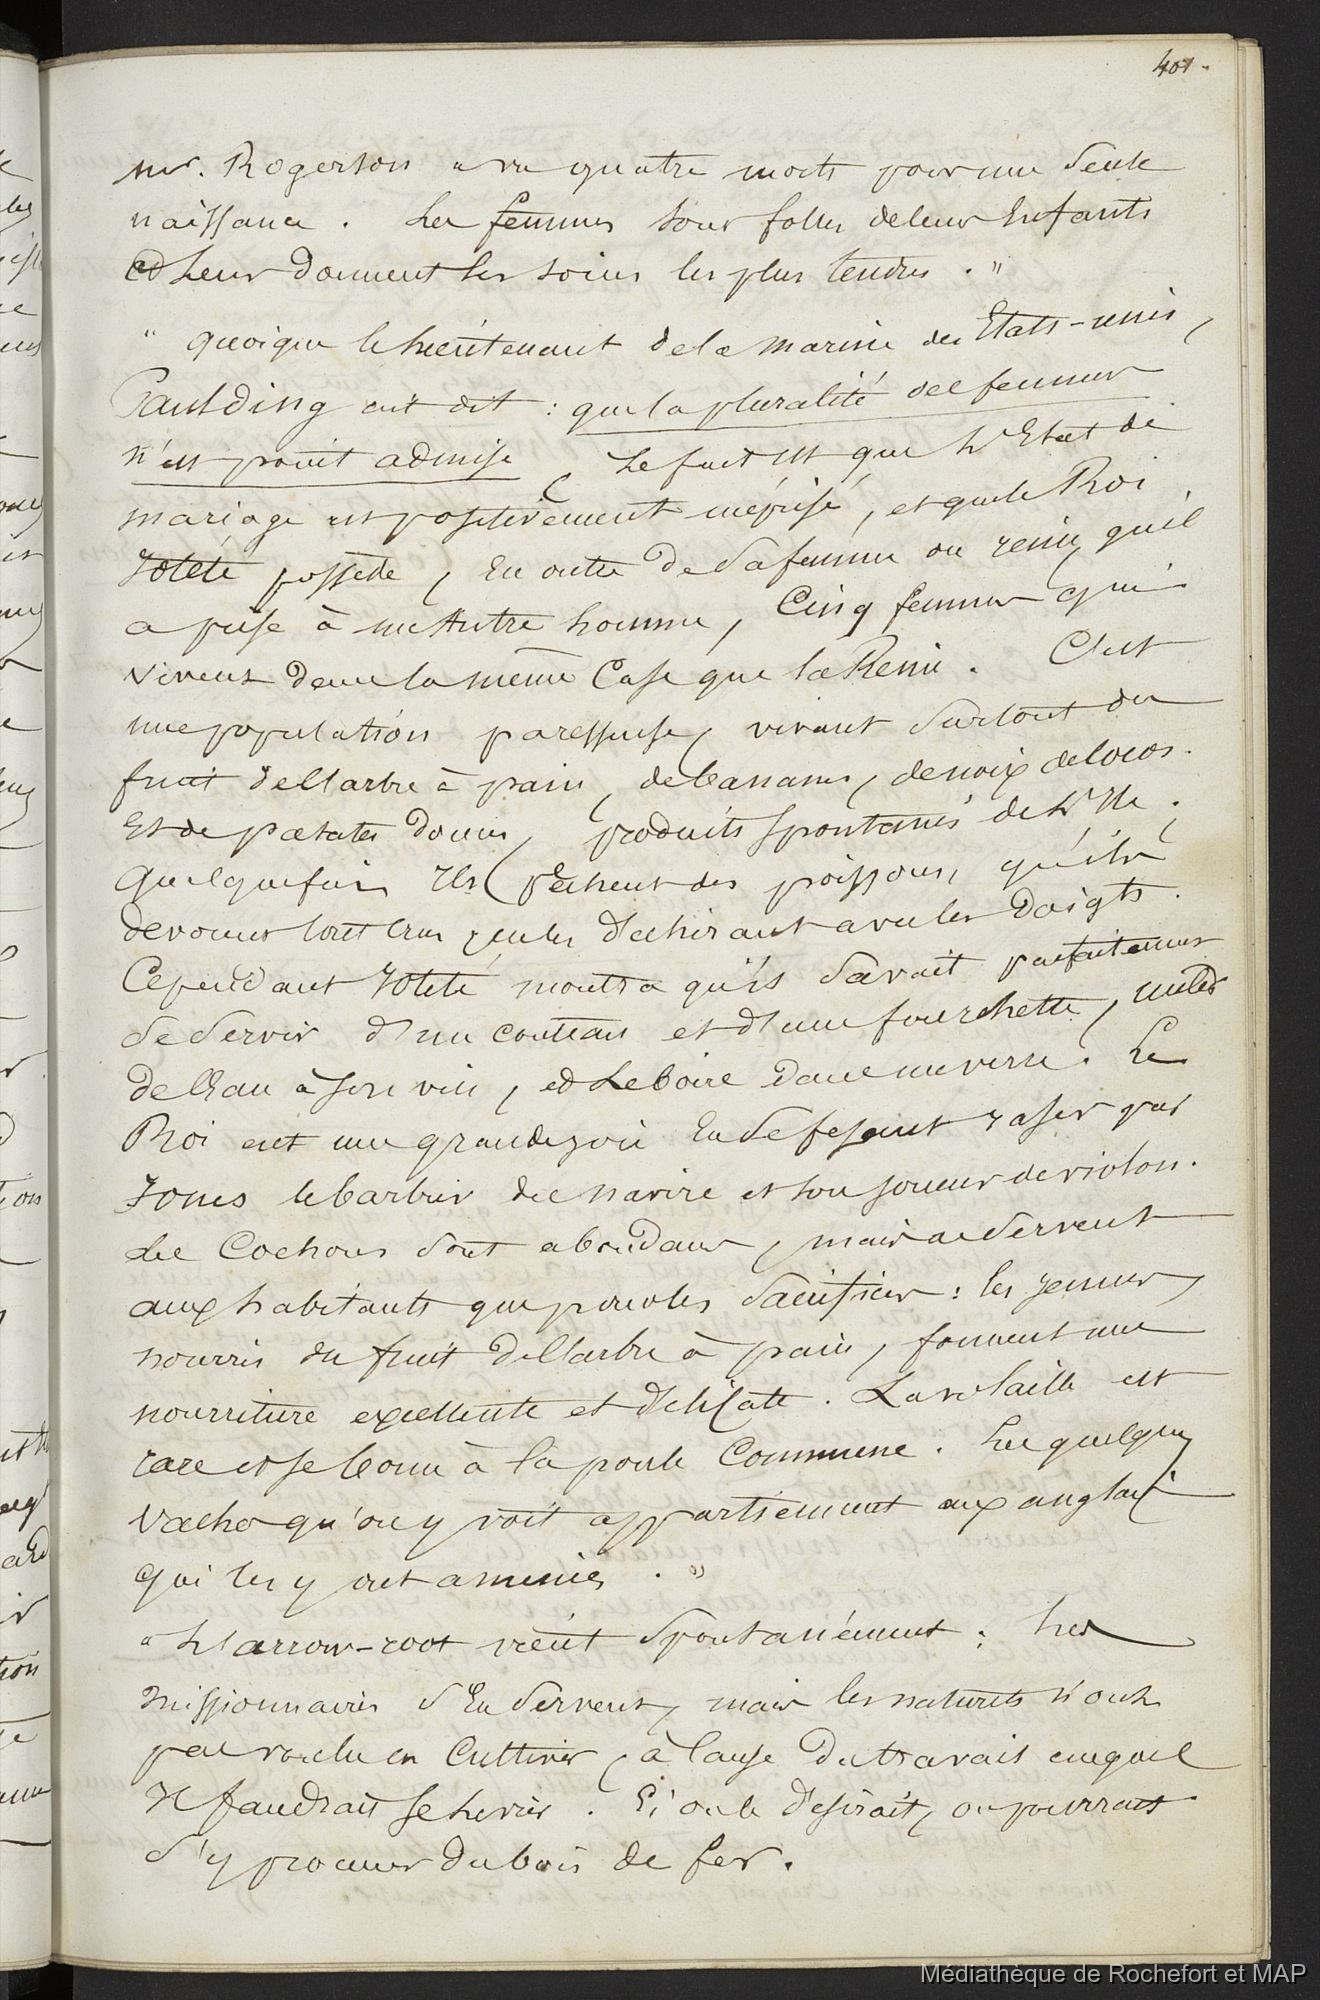 401.
mr. Rogerson a vu quatre morts pour une seule
naissance. Les femmes sont folles de leurs Enfants
et Leur donnent les soins les plus tendres. "
" quoique le lieutenant de la marine des Etats-unis,
Paulding ait dit : que la pluralité des femmes
n'est point admise, Le fait est que l'Etat de
mariage est positivement méprisé, et que le Roi
Iotété possede, En outre de sa femme ou reine, qu'il
a prise à un Autre homme, Cinq femmes qui
vivent dans la même Case que la Reine. C'est
une population paresseuse, vivant surtout du
fruit de l'arbre à pain, de bananes, de noix de cocos.
Et de patates douces, produits spontanés de l'Ile ;
quelquefois Ils pêchent des poissons, qu'ils
devorent tout crus, en les déchirant avec les doigts.
Cependant Iotété montra qu'il savait parfaitement
se servir d'un couteau et d'une fourchette, mêler
de l'Eau à son vin, et Le boire dans un verre. Le
Roi eut une grande joie En se fesant raser par
Jones le barbier du navire et son joueur de violon.
Les Cochons sont abondans, mais ne servent
aux habitants que pour les sacrifices : les jeunes,
nourris du fruit de l'arbre à pain, forment une
nourriture excellente et délicate. La volaille est
rare et se borne à la poule Commune. Les quelques
Vaches qu'on y voit appartiennent aux anglais
qui les y ont amenées. "
" L'arrow-root vient spontanément ; Les
missionnaires s'En servent, mais les naturels n'ont
pas voulu en Cultiver, à Cause du travail auquel
Il faudrait se livrer. Si on le désirait, on pourrait
s'y procurer du bois de fer.
Médiathèque de Rochefort et MAP